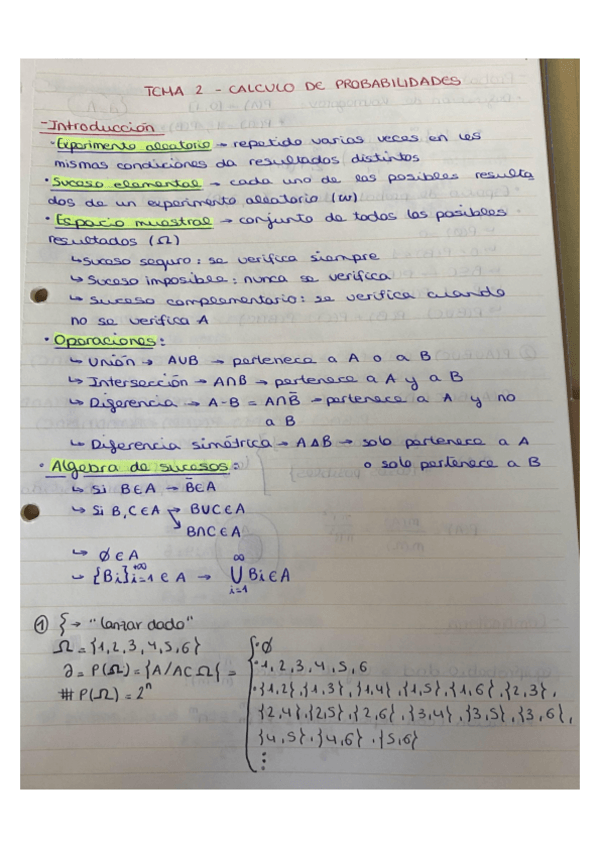 TEMA 2 - CALCULO DE PROBABILIDADES
-Introducción
·Experimento aleatorio → repetido varias veces en las
mismas condiciones da resultados distintos
·Suceso elemental → cada uno de los posibles resulta
dos de un experimento aleatorio (w)
·Espacio muestral → conjunto de todos los posibles
resultados (Ω)
↳Suceso seguro: se verifica siempre
↳Suceso imposible: nunca se verifica
↳Suceso complementario: se verifica cuando
no se verifica A
·Operaciones:
↳Unión → A∪B → pertenece a A o a B
↳Intersección → A∩B → pertenece a A y a B
↳Diferencia → A-B = A∩B̄ → pertenece a A y no
a B
↳Diferencia simétrica → A∆B → solo pertenece a A
o solo pertenece a B
·Algebra de sucesos:
↳ Si B∈A → B̄∈A
↳ Si B,C∈A → B∪C∈A
B∩C∈A
↳ ∅∈A
↳ {Bi}i=1^+∞ ∈ A → ⋃i=1^∞ Bi∈A
① ξ → "lanzar dado"
Ω = {1,2,3,4,5,6}
∂ = P(Ω) = {A/A⊂Ω} = { ·∅
# P(Ω) = 2ⁿ
·1,2,3,4,5,6
·{1,2},{1,3},{1,4},{1,5},{1,6},{2,3},
{2,4},{2,5},{2,6},{3,4},{3,5},{3,6},
{4,5},{4,6},{5,6}
⋮